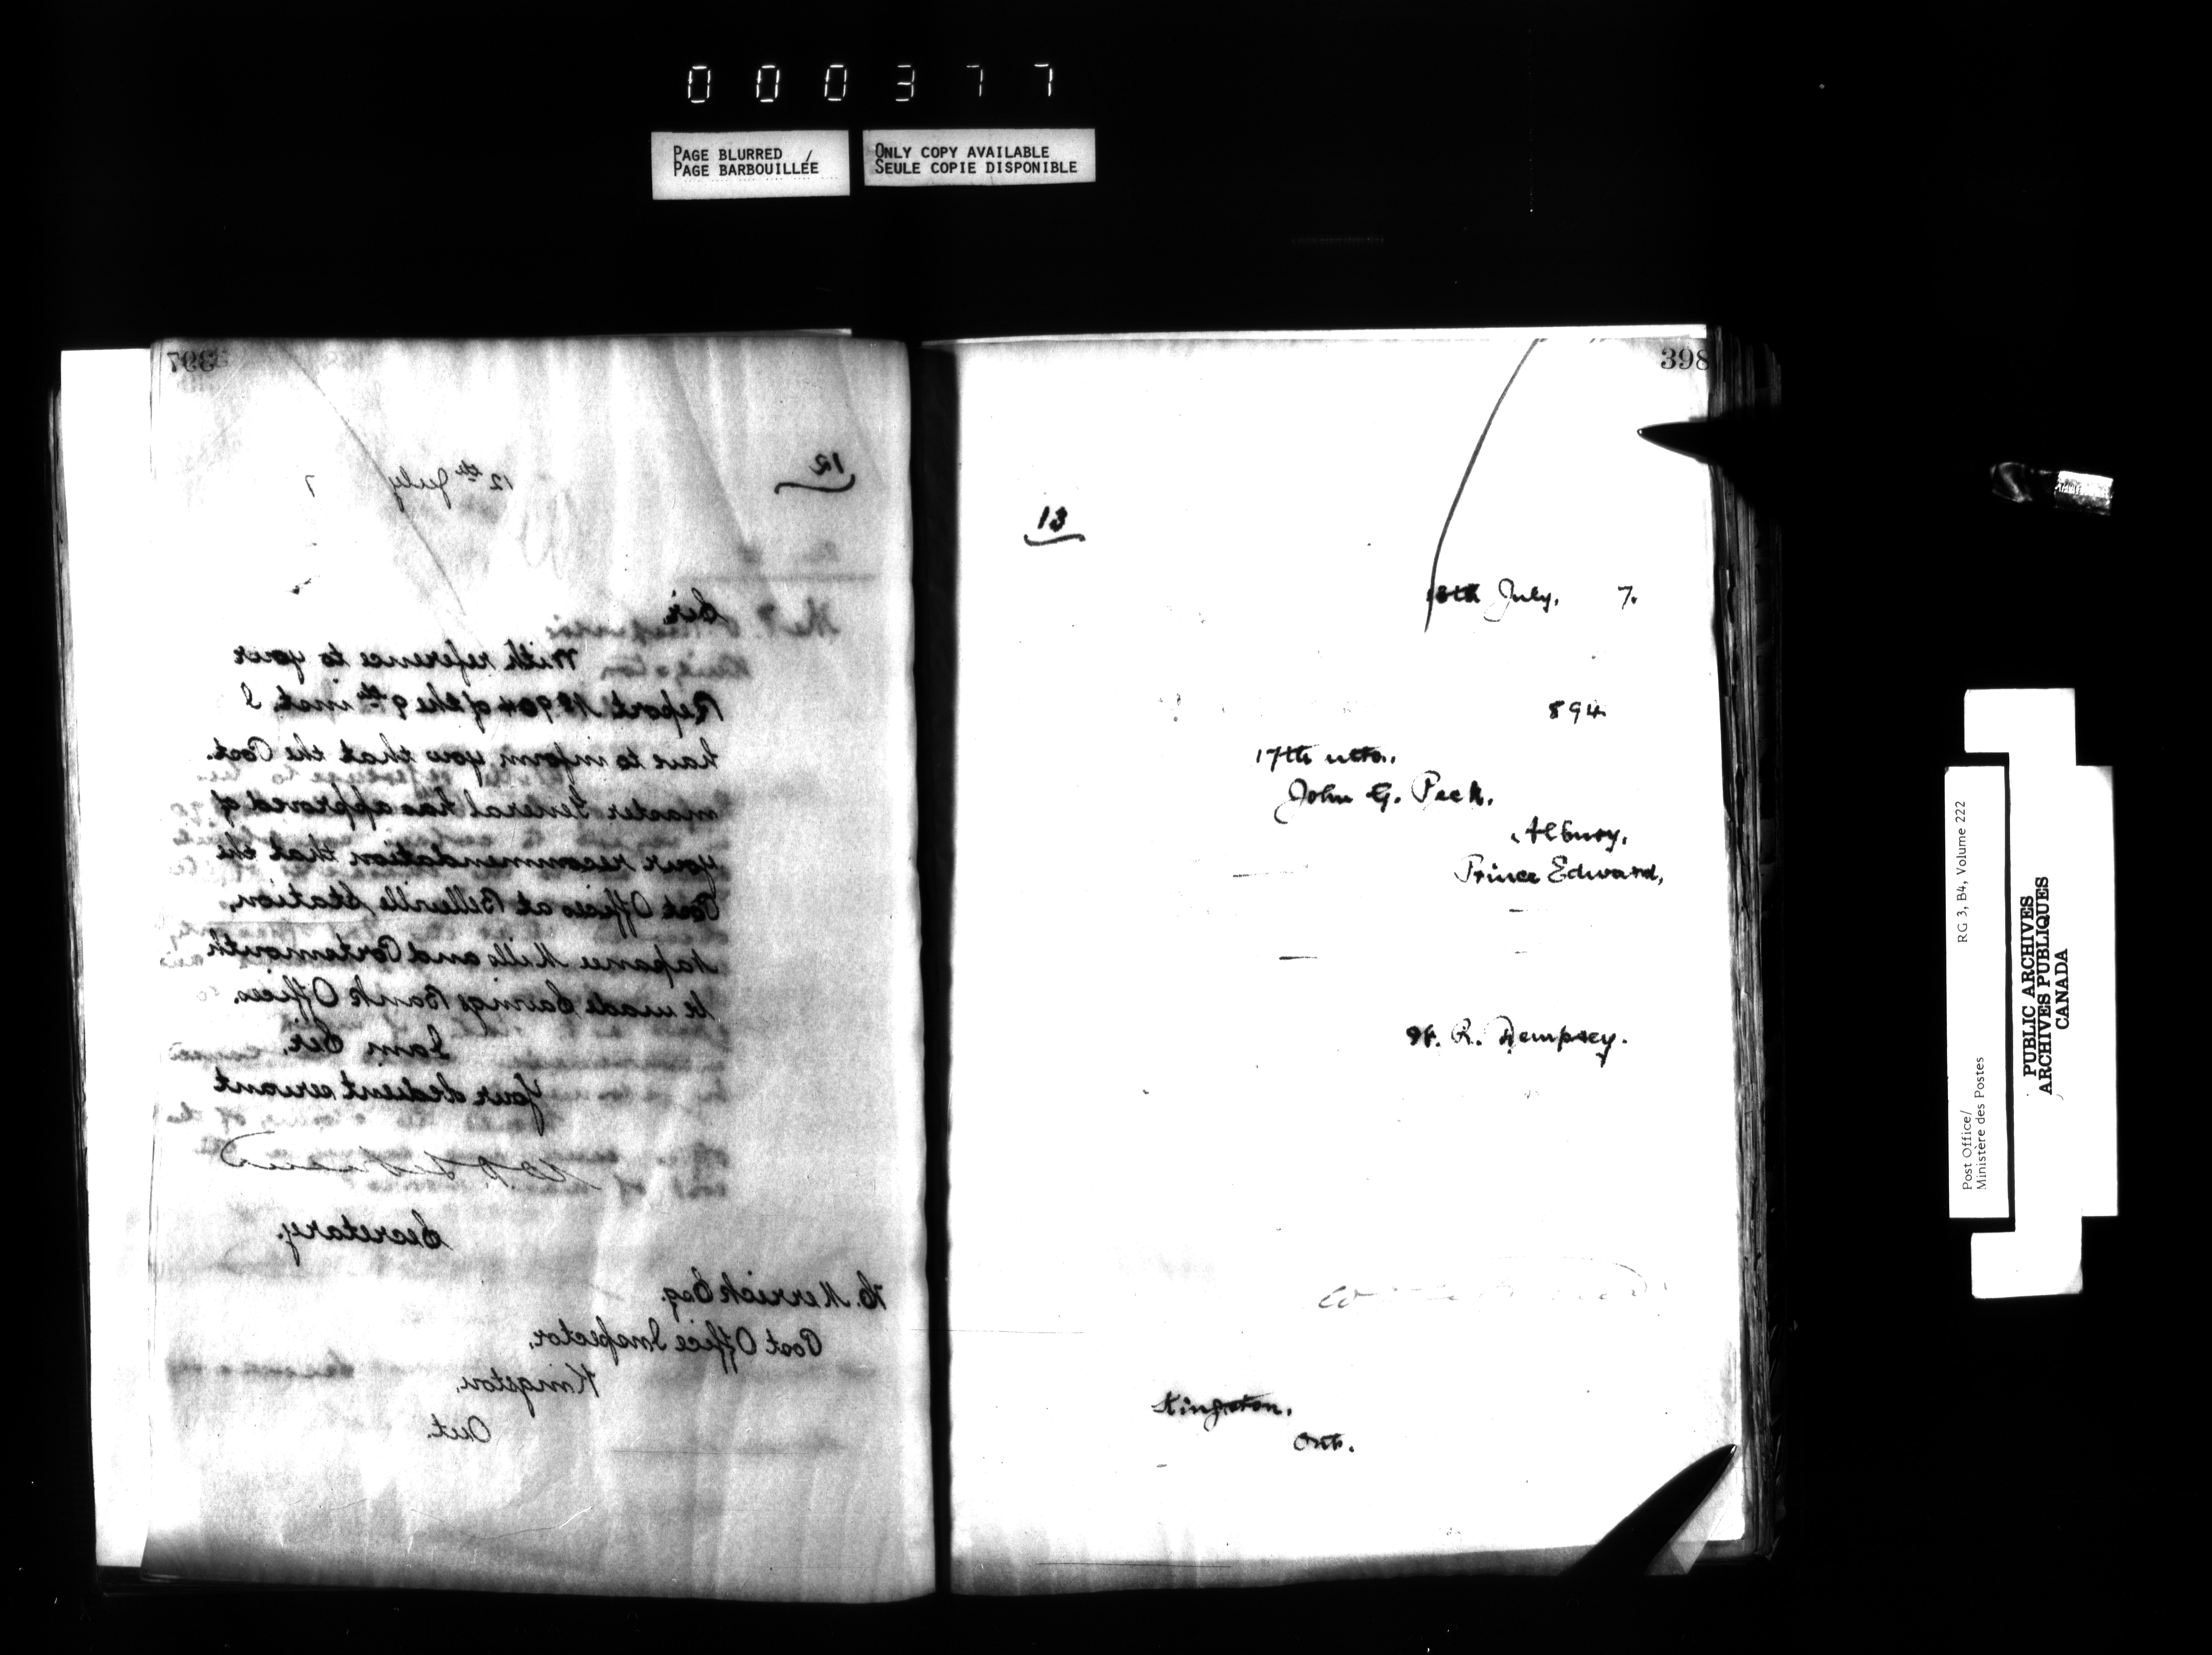 000377
PAGE BLURRED /
PAGE BARBOUILLÉE
ONLY COPY AVAILABLE
SEULE COPIE DISPONIBLE
397
12
12th July 7
Sir,
With reference to your
Report No 904 of the 9th inst. I
have to inform you that the Post.
master General has approved of
your recommendation that the
Post Offices at Belleville Station,
Napanee Mills and Portsmouth
be made Savings Bank Offices.
I am, Sir,
Your obedient servant
Secretary.
H. Merrick Esq.
Post Office Inspector,
Kingston,
Ont.
398
13
July, 7.
894
17th ulto.,
John G. Peck,
Albury,
Prince Edward,
W. R. Dempsey.
Kingston,
Ont.
RG 3, B4, Volume 222
Post Office/
Ministère des Postes
PUBLIC ARCHIVES
ARCHIVES PUBLIQUES
CANADA